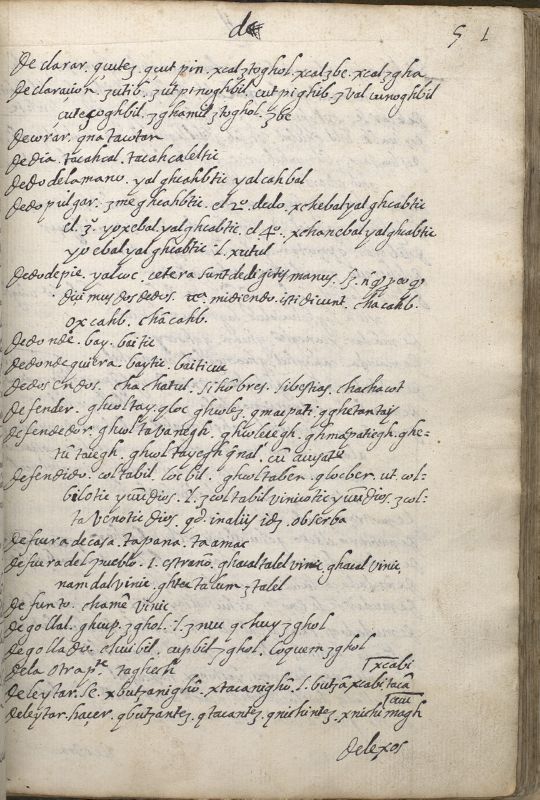 de 51
Declarar. qcutez. qcut pin. xcalztoghol. xcalzbe. xcalzgha
Declaracion. zutib. zut pinoghbil. cut pighib. zval cunoghbil
cutecoghbil. zghamil ztoghol. zbe
Decorar. gnatacotan
De dia. tacahcal. tacahcaleltic
Dedo de la mano. yal ghcahbtic yalcahbal
Dedo pulgar. zme ghcahbtic. el 2º. dedo. xchebalyalghcabtic
el 3º. yoxebal yalghcabtic. el 4º. xchanebal yalghcabtic
yoebal yalghcabtic. l. xutul
Dedo de pie. yalcoc. cetera sunt de digitis manus.
dicimus dos dedos. vt. midiendo. isti dicunt. chacahb.
oxcahb. chacahb.
De donde. bay. baitic
De donde quiera. baytic. baiticuc
De dos en dos. chachatul. si hōbres. si bestias. chachacot
Defender. ghcoltay. gloc. ghcolez. gmacpati. gghetantay
Defendedor. ghcoltavanegh. ghcolecegh. ghmacpatiegh. ghe=
tūtaiegh. ghcoltayegh gnal. cū
Defendido. coltabil. locbil. ghcoltaben. glocber. ut col-
bilotic yuūdius. l. zcoltabil viniotic yuūdios. zcol-
tavenotic dios. qd. in aliis idz. obserba
De fuera de casa. tapana. taamac
De fuera del pueblo. l. estraño. ghacaltalel vinic. ghacal vinic
namdal vinic. ghtectalum ztalel
Defunto. chamē vinic
Degollar. ghcup. zghol. l. znuc qchuy zghol
Degollado. chuibil. cupbil zghol. coquem zghol
De la otra pte. taghech
Deleytar. se. xbutzanighū. xtacanighū. l. butzā xcabi, tacā xcabi
Deleytar. hacer. qbutzantez. qtacantez. qnichintez. xnichimagh
delexos